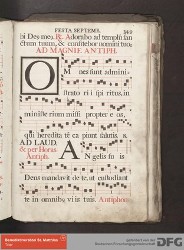 FESTA SEPTEMB.
bi Deus meus. ℟. Adorabo ad templũ san
ctum tuum, & confitebor nomini tuo.
AD MAGNIF. ANTIPH.
Omnes sunt admini-
stratorii spiritus, in
ministerium missi propter eos,
qui heredita tẽ ca piunt salutis.
AD LAUD.
& per Horas
Antiph.
Angelis su is
Deus mandavit de te, ut custodiant
te in omnibus vi is tuis. Antiphona